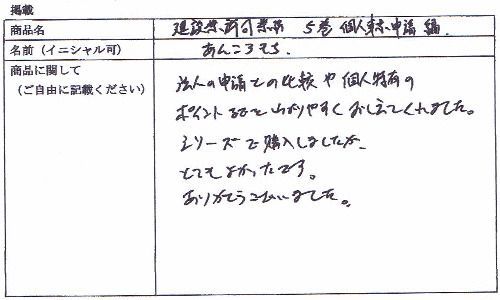 掲載
商品名 建設業許可業務 5巻 個人事業申請編
名前（イニシャル可） あんころもち
商品に関して
（ご自由に記載ください）
法人の申請との比較や個人特有の
ポイントなどと分かりやすくおしえてくれました。
シリーズで購入しましたが、
とてもよかったです。
ありがとうございました。